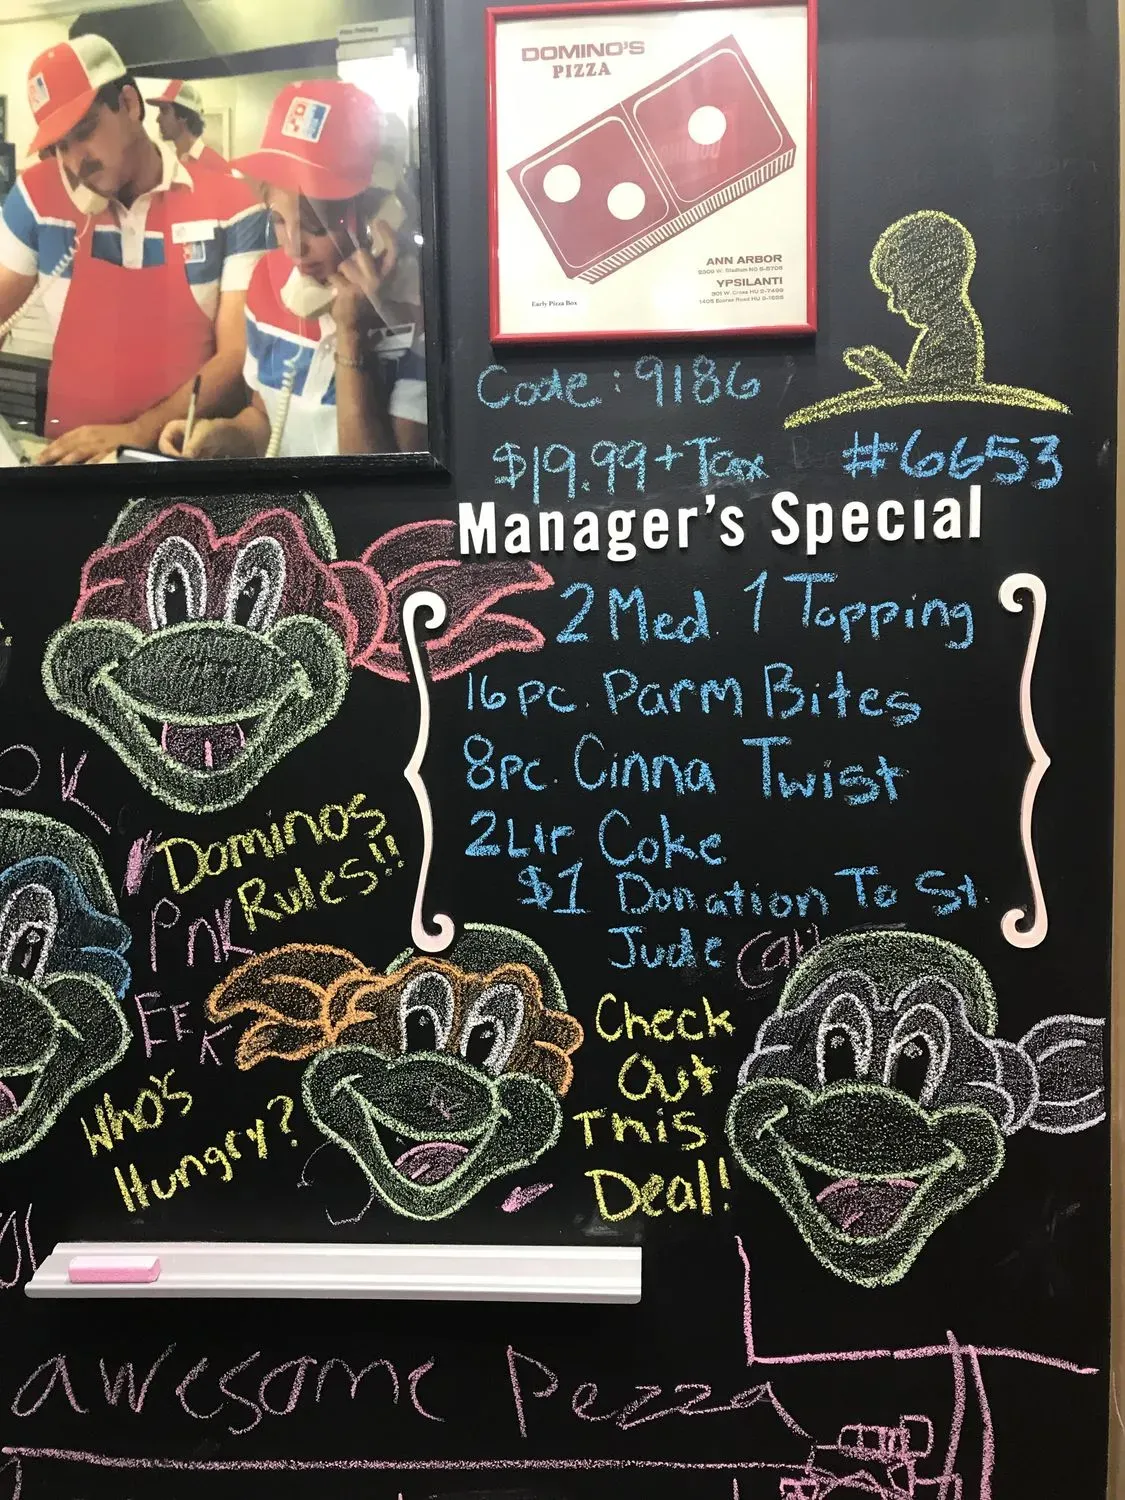 DOMINO'S
PIZZA
ANN ARBOR
YPSILANTI
Early Pizza Box
Code: 9186
$19.99+Tax
#6653
Manager's Special
2 Med. 1 Topping
16 pc. Parm Bites
8pc. Cinna Twist
2 Ltr Coke
$1 Donation To St.
Jude
Dominos
Rules!!
Pnk
EEK
Who's
Hungry?
Check
Out
This
Deal!
awesome Pezza